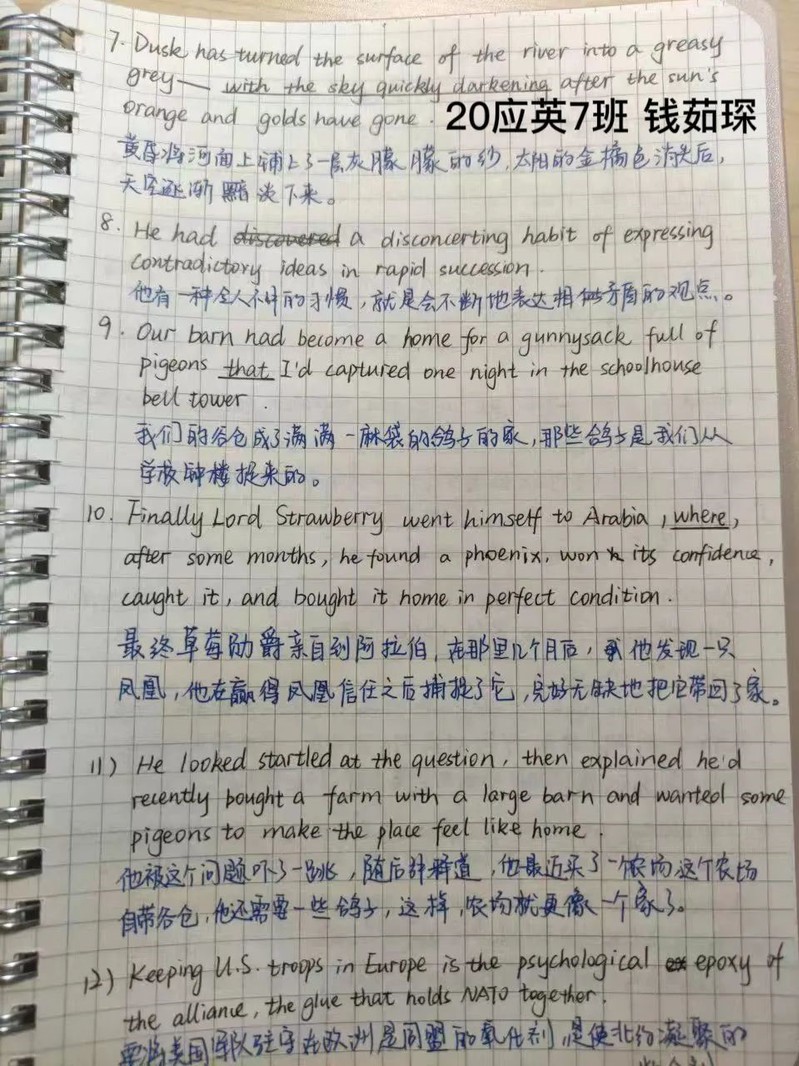 7. Dusk has turned the surface of the river into a greasy
grey— with the sky quickly darkening after the sun's
orange and golds have gone.
20应英7班 钱茹琛
黄昏将河面上铺上了一层灰朦朦的纱，太阳的金橘色消失后，
天空逐渐黯淡下来。
8. He had discovered a disconcerting habit of expressing
contradictory ideas in rapid succession.
他有一种令人不快的习惯，就是会不断地表达相似矛盾的观点。
9. Our barn had become a home for a gunnysack full of
pigeons that I'd captured one night in the schoolhouse
bell tower.
我们的谷仓成了满满一麻袋的鸽子的家，那些鸽子是我们从
学校钟楼捉来的。
10. Finally Lord Strawberry went himself to Arabia, where,
after some months, he found a phoenix, won its confidence,
caught it, and bought it home in perfect condition.
最终草莓勋爵亲自到阿拉伯，在那里几个月后，他发现一只
凤凰，他在赢得凤凰信任之后捕捉了它，完好无缺地把它带回了家。
11) He looked startled at the question, then explained he'd
recently bought a farm with a large barn and wanted some
pigeons to make the place feel like home.
他被这个问题吓了一跳，随后解释道，他最近买了一个农场这个农场
自带谷仓，他还需要一些鸽子，这样，农场就更像一个家了。
12) Keeping U.S. troops in Europe is the psychological epoxy of
the alliance, the glue that holds NATO together.
美国军队驻守在欧洲是同盟的氧化剂，是使北约凝聚的